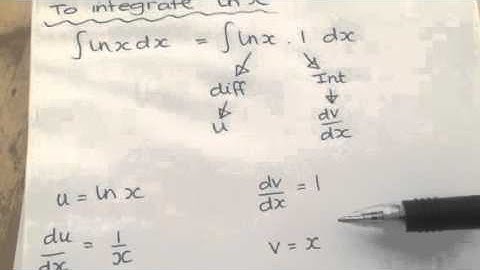 To integrate ln x
∫ ln x dx = ∫ ln x . 1 dx
diff Int
u dv/dx
u = ln x dv/dx = 1
du/dx = 1/x v = x